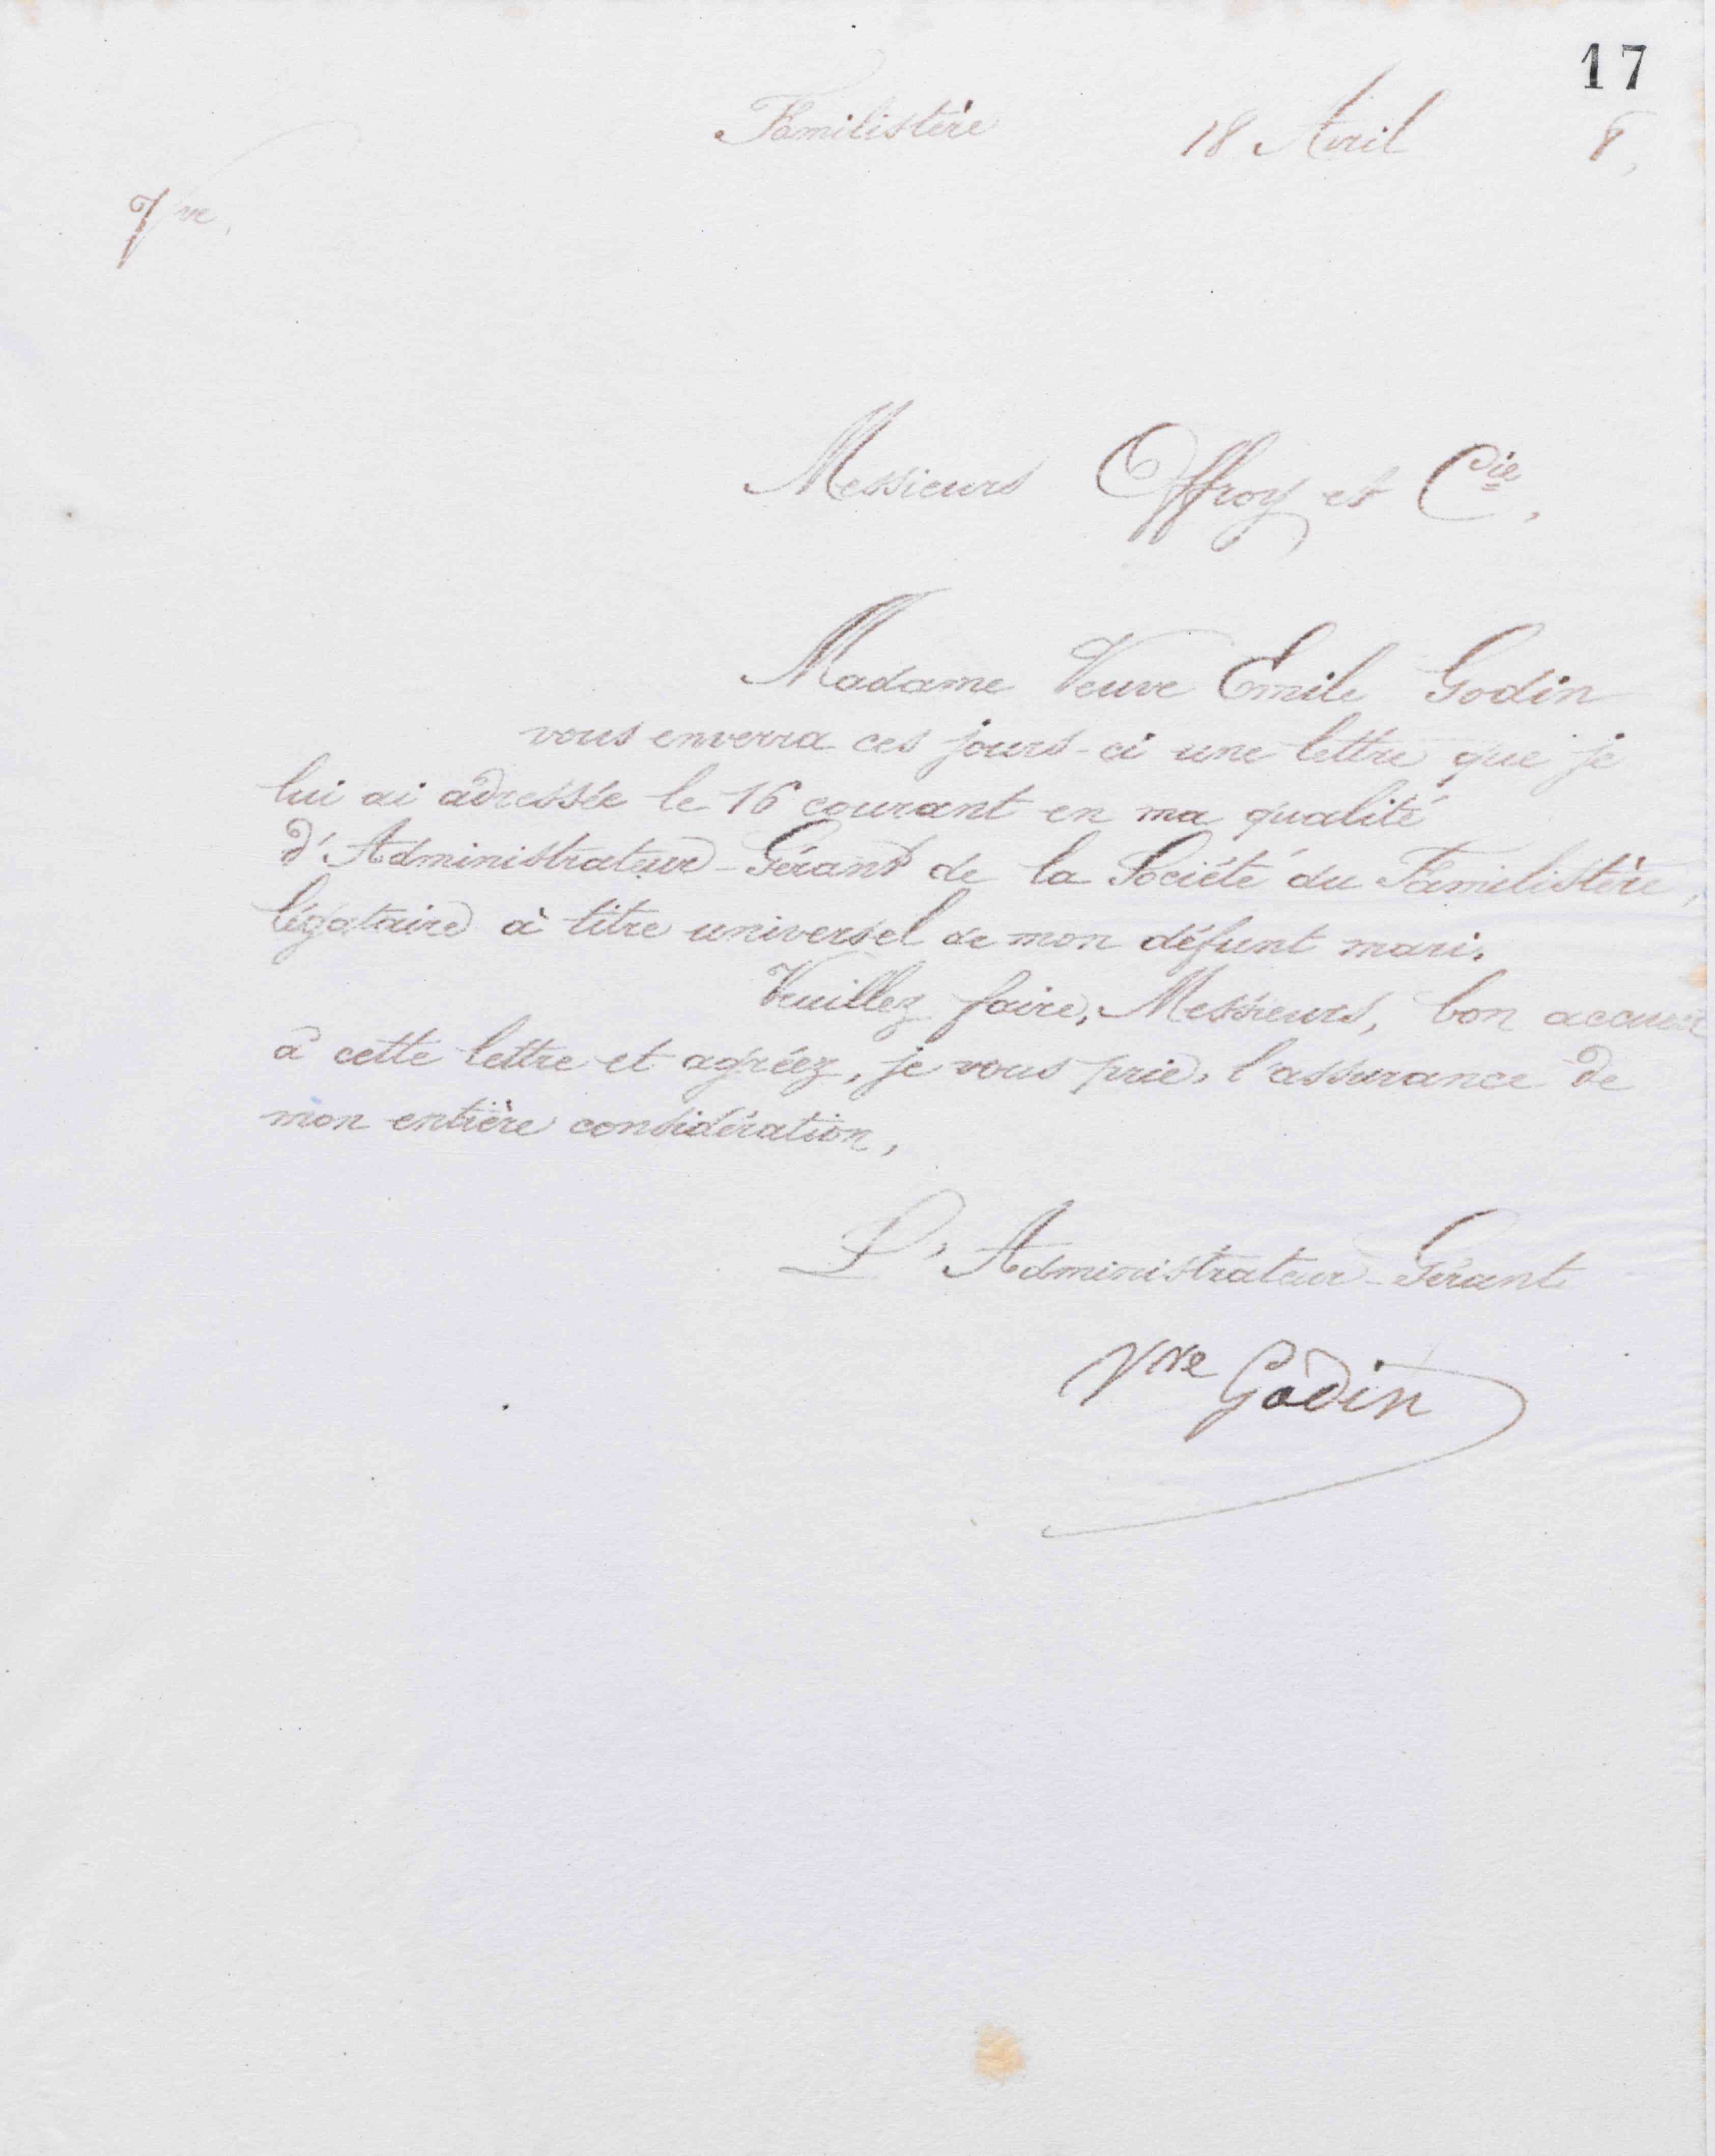 17
Familistère 18 Avril 8,
Vve
Messieurs Offroy et Cie,
Madame Veuve Emile Godin
vous enverra ces jours-ci une lettre que je
lui ai adressée le 16 courant en ma qualité
d'Administrateur-Gérant de la Société du Familistère,
légataire à titre universel de mon défunt mari.
Veuillez faire, Messieurs, bon accueil
à cette lettre et agréez, je vous prie, l'assurance de
mon entière considération,
L'Administrateur-Gérant
Vve Godin